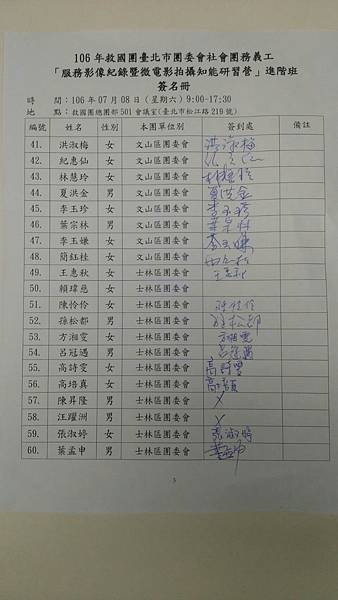 106 年救國團臺北市團委會社會團務義工
「服務影像紀錄暨微電影拍攝知能研習營」進階班
簽名冊
時　間：106 年 07 月 08 日（星期六）9:00-17:30
地　點：救國團總團部 501 會議室(臺北市松江路 219 號)
編號 姓名 性別 本團單位別 簽到處 備註
41. 洪淑梅 女 文山區團委會 洪淑梅
42. 紀惠仙 女 文山區團委會
43. 林慧玲 女 文山區團委會 林慧玲
44. 夏洪金 男 文山區團委會 夏洪金
45. 李玉珍 女 文山區團委會 李玉珍
46. 葉宗林 男 文山區團委會 葉宗林
47. 李玉嫌 女 文山區團委會
48. 簡鈺桂 女 文山區團委會
49. 王惠秋 女 士林區團委會 王惠秋
50. 賴瑋慈 女 士林區團委會
51. 陳怜伶 女 士林區團委會 陳怜伶
52. 孫松都 男 士林區團委會 孫松都
53. 方湘雯 女 士林區團委會 方湘雯
54. 呂冠遇 男 士林區團委會
55. 高詩雯 女 士林區團委會 高詩雯
56. 高培真 女 士林區團委會
57. 陳昇隆 男 士林區團委會 X
58. 汪躍洲 男 士林區團委會 X
59. 張淑婷 女 士林區團委會 張淑婷
60. 葉孟申 男 士林區團委會 葉孟申
3